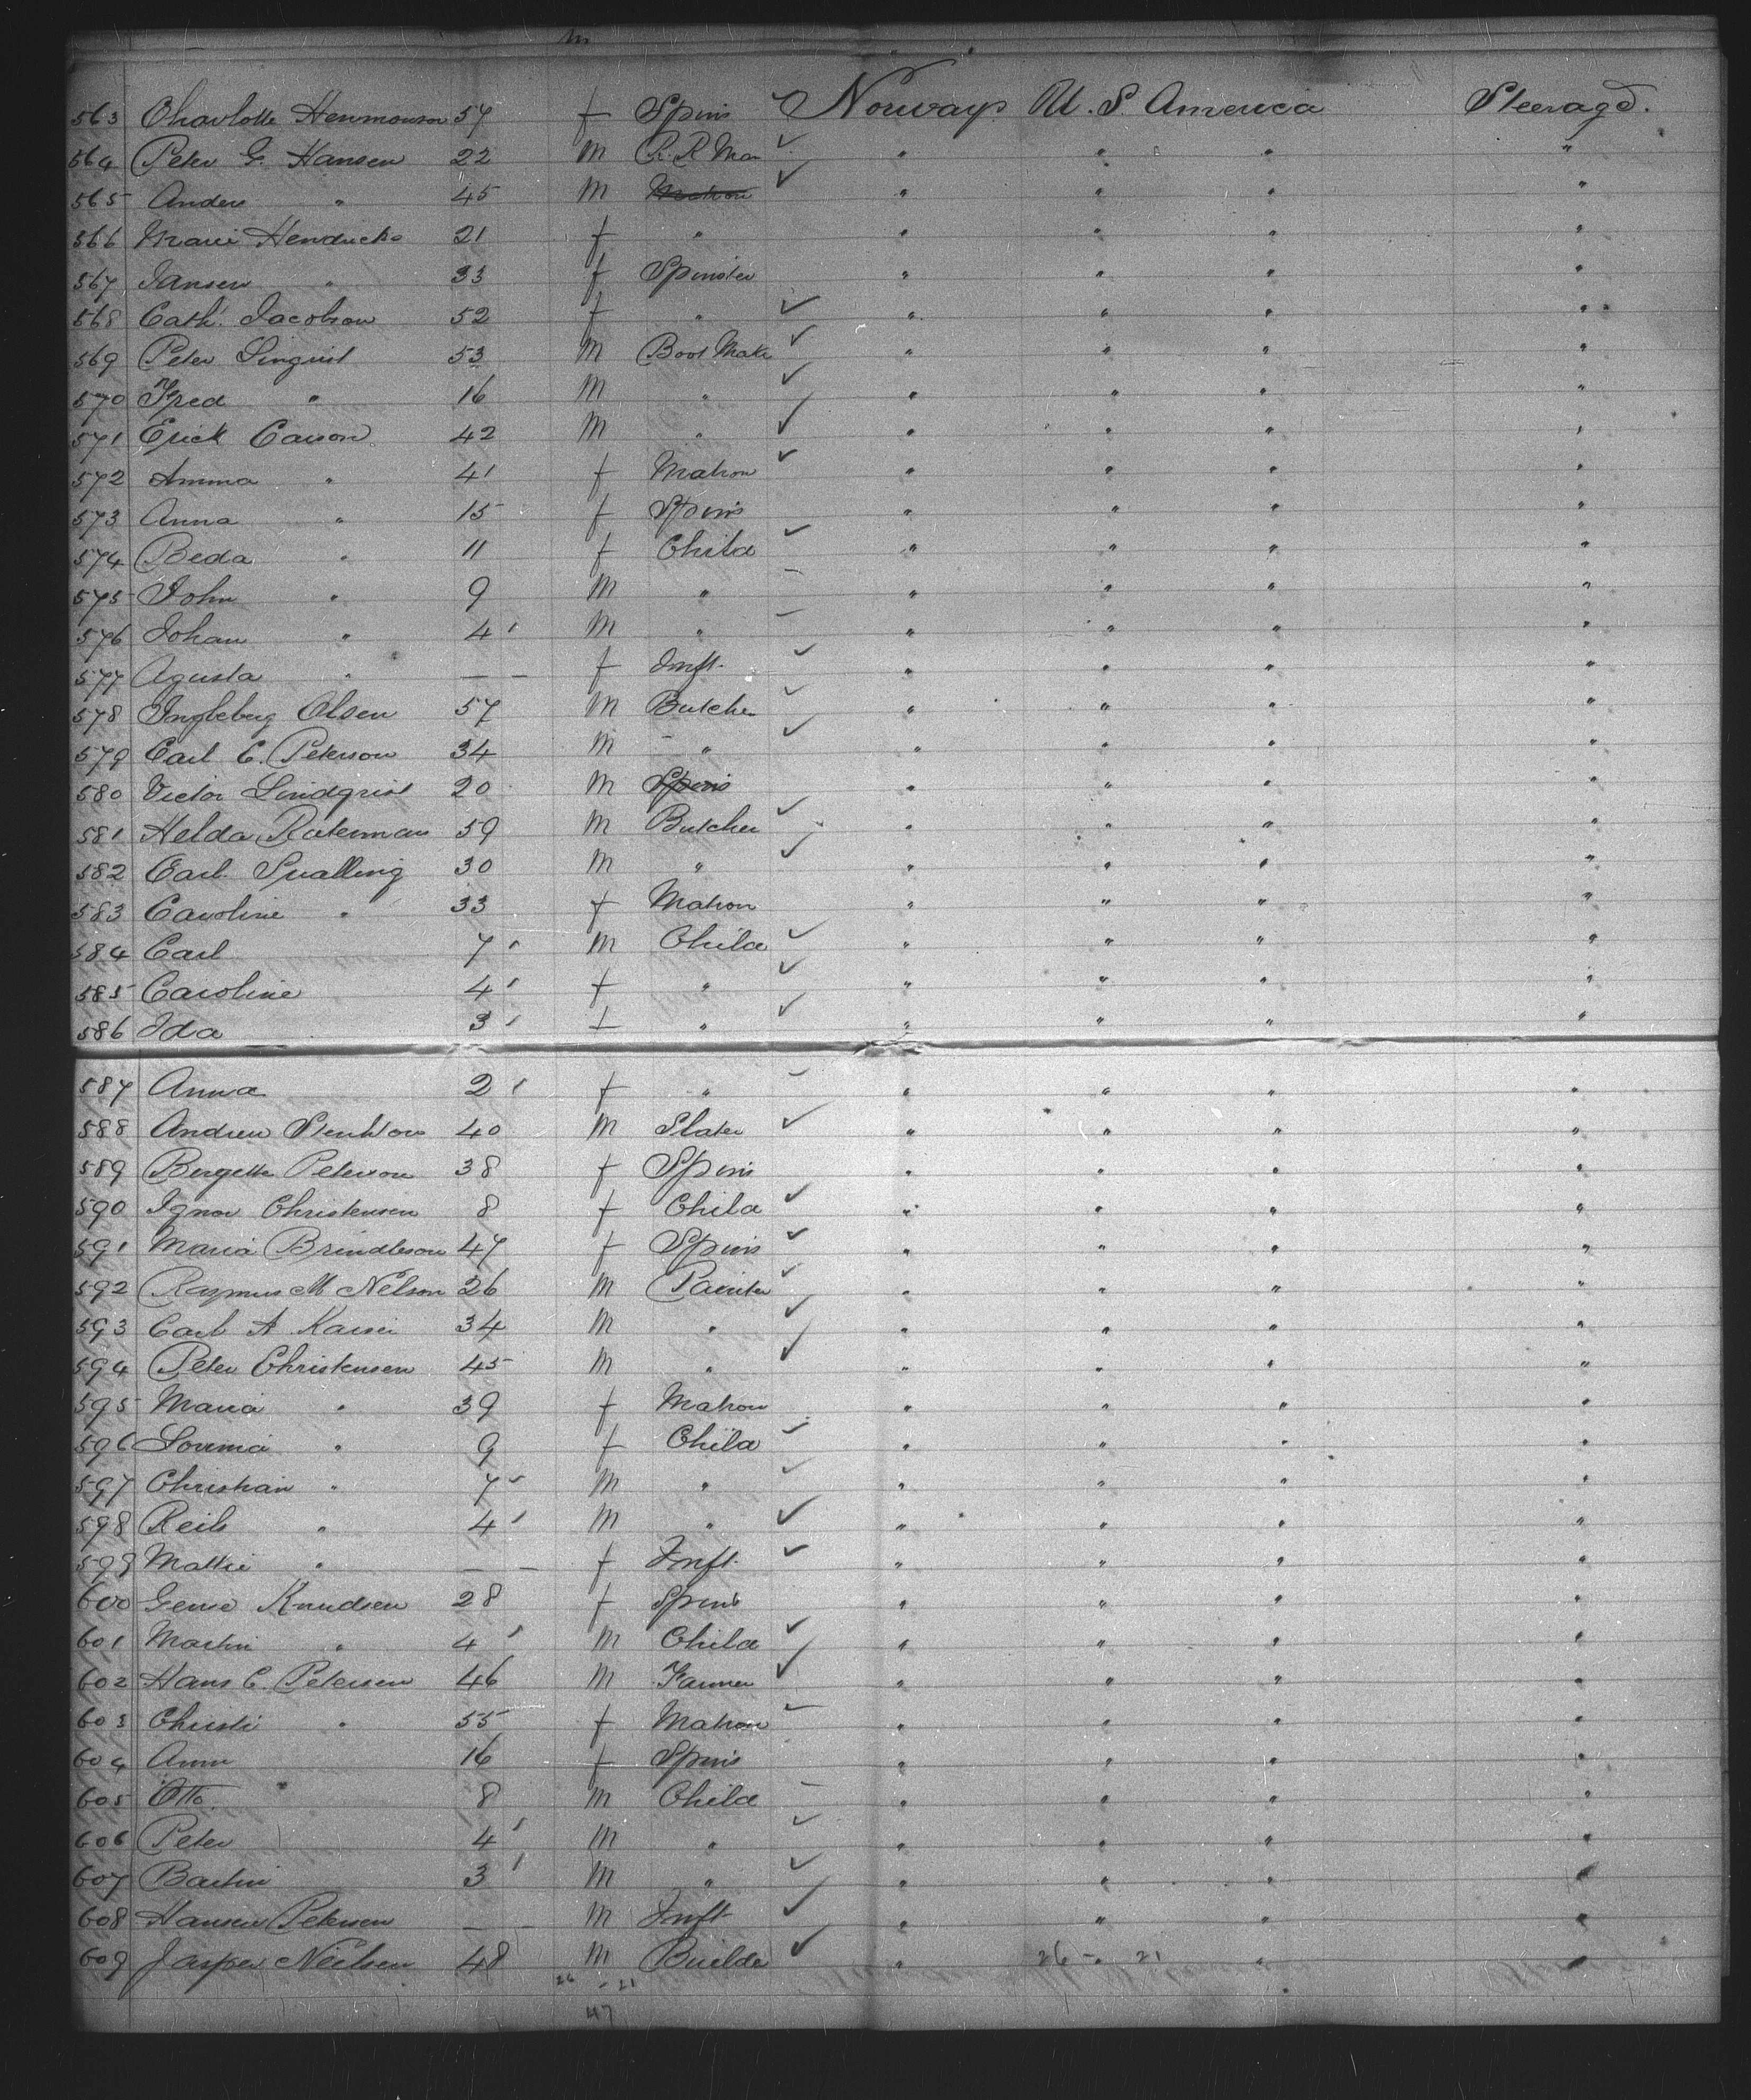 m
563 Charlotte Hermonson 57 f Spins Norways U. S. America Steerage.
564 Peter G. Hansen 22 m R. R Man " " " "
565 Anders " 45 m Matron " " " "
566 Marie Hendricks 21 f " " " " "
567 Jansen " 33 f Spinster " " " "
568 Cath. Jacobson 52 f " " " " "
569 Peter Linquist 53 m Boot Make " " " "
570 Fred " 16 m " " " " "
571 Erick Carson 42 m " " " " "
572 Amma " 41 f Matron " " " "
573 Anna " 15 f Spins " " " "
574 Beda " 11 f Child " " " "
575 John " 9 m " " " " "
576 Johan " 4 m " " " " "
577 Agusta " — - f Inft. " " " "
578 Ingleberg Olsen 57 m Butcher " " " "
579 Carl C. Peterson 34 m " " " " "
580 Victor Lindqrist 20 m Spins " " " "
581 Helda Raterman 59 m Butcher " " " "
582 Carl 30 m " " " " "
583 Caroline " 33 f Matron " " " "
584 Carl 7 m Child " " " "
585 Caroline 4 f " " " " "
586 Ida 3 f " " " " "
587 Anna 2 f " " " " "
588 Andrew 40 m Slater " " " "
589 Bergette Peterson 38 f Spins " " " "
590 Ignor Christensen 8 f Child " " " "
591 Maria Brindleson 47 f Spins " " " "
592 Rasmus M Nelson 26 m Painter " " " "
593 Carl A Kaiser 34 m " " " " "
594 Peter Christensen 45 m " " " " "
595 Maria " 39 f Matron " " " "
596 Lovina " 9 f Child " " " "
597 Christian " 7 m " " " " "
598 Reils " 4 m " " " " "
599 Mattie " — - f Inft. " " " "
600 Knudsen 28 f Spins " " " "
601 Martin " 4 m Child " " " "
602 Hans C. Petersen 46 m Farmer " " " "
603 Christi " 55 f Matron " " " "
604 Ann 16 f Spins " " " "
605 Otto " 8 m Child " " " "
606 Peter 4 m " " " " "
607 Bartin 3 m " " " " "
608 Hansen Petersen — - m Inft " " " "
609 Jasper Neilsen 48 m Builder " 26 - 21 " "
26 - 21
47